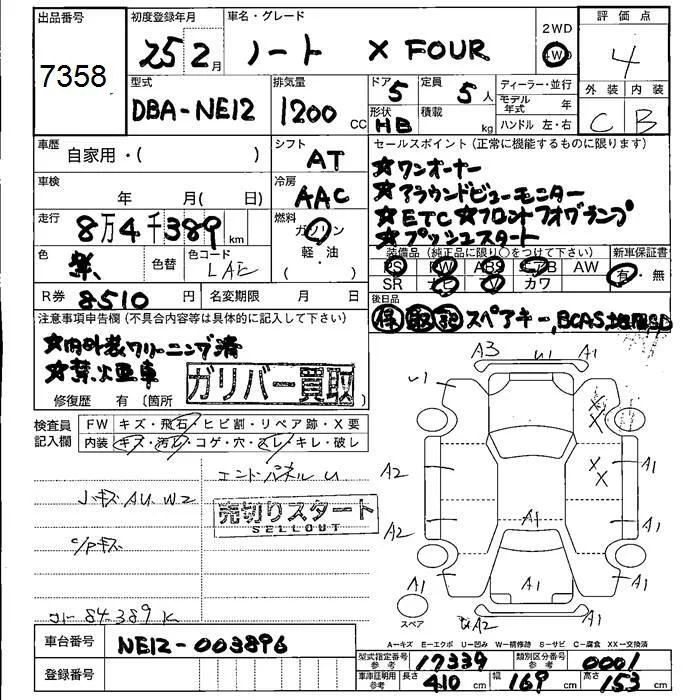 出品番号
7358
初度登録年月
25 2月
車名・グレード
ノート X FOUR
2WD
4WD
評価点
4
外装 内装
C B
型式
DBA-NE12
排気量
1200 CC
ドア 5
形状 HB
定員 5人
積載 kg
ディーラー・並行
モデル年式 年
ハンドル 左・右
車歴
自家用・( )
シフト
AT
セールスポイント(正常に機能するものに限ります)
☆ワンオーナー
☆アラウンドビューモニター
☆ETC☆フロントフォグランプ
☆プッシュスタート
車検
年 月( 日)
冷房
AAC
走行
8万4千389km
燃料
ガソリン
・
軽油
( )
色
紫
色替
色コード
LAE
装備品(純正品に限り○をつけて下さい)
PS PW ABS エアB AW
SR ナビ TV カワ
新車保証書
有・無
R券 8510円
名変期限 月 日
後日品
保 取 記 スペアキー,BCAS,地図SD
注意事項申告欄(不具合内容等は具体的に記入して下さい)
☆内外装クリーニング済
☆禁煙車
ガリバー買取
修復歴 有〔箇所
検査員記入欄
FW キズ・飛石・ヒビ割・リペア跡・X要
内装 キズ・汚れ・コゲ・穴・スレ・キレ・破レ
エンドパネル U
Jキズ AU W2
売切りスタート
SELLOUT
C/Pキズ
コト 84.389 K
A3 U1 A1
U1
X
X
A2 X X A1
A2 A1 A1
A1 A1 A1
スペア
A2
A=キズ E=エクボ U=凹み W=補修跡 S=サビ C=腐食 XX=交換済
車台番号 NE12-003896
登録番号
型式指定番号 参考 17339
類別区分番号 参考 0001
車庫証明用 参考 長さ 410cm 幅 169cm 高さ 153cm